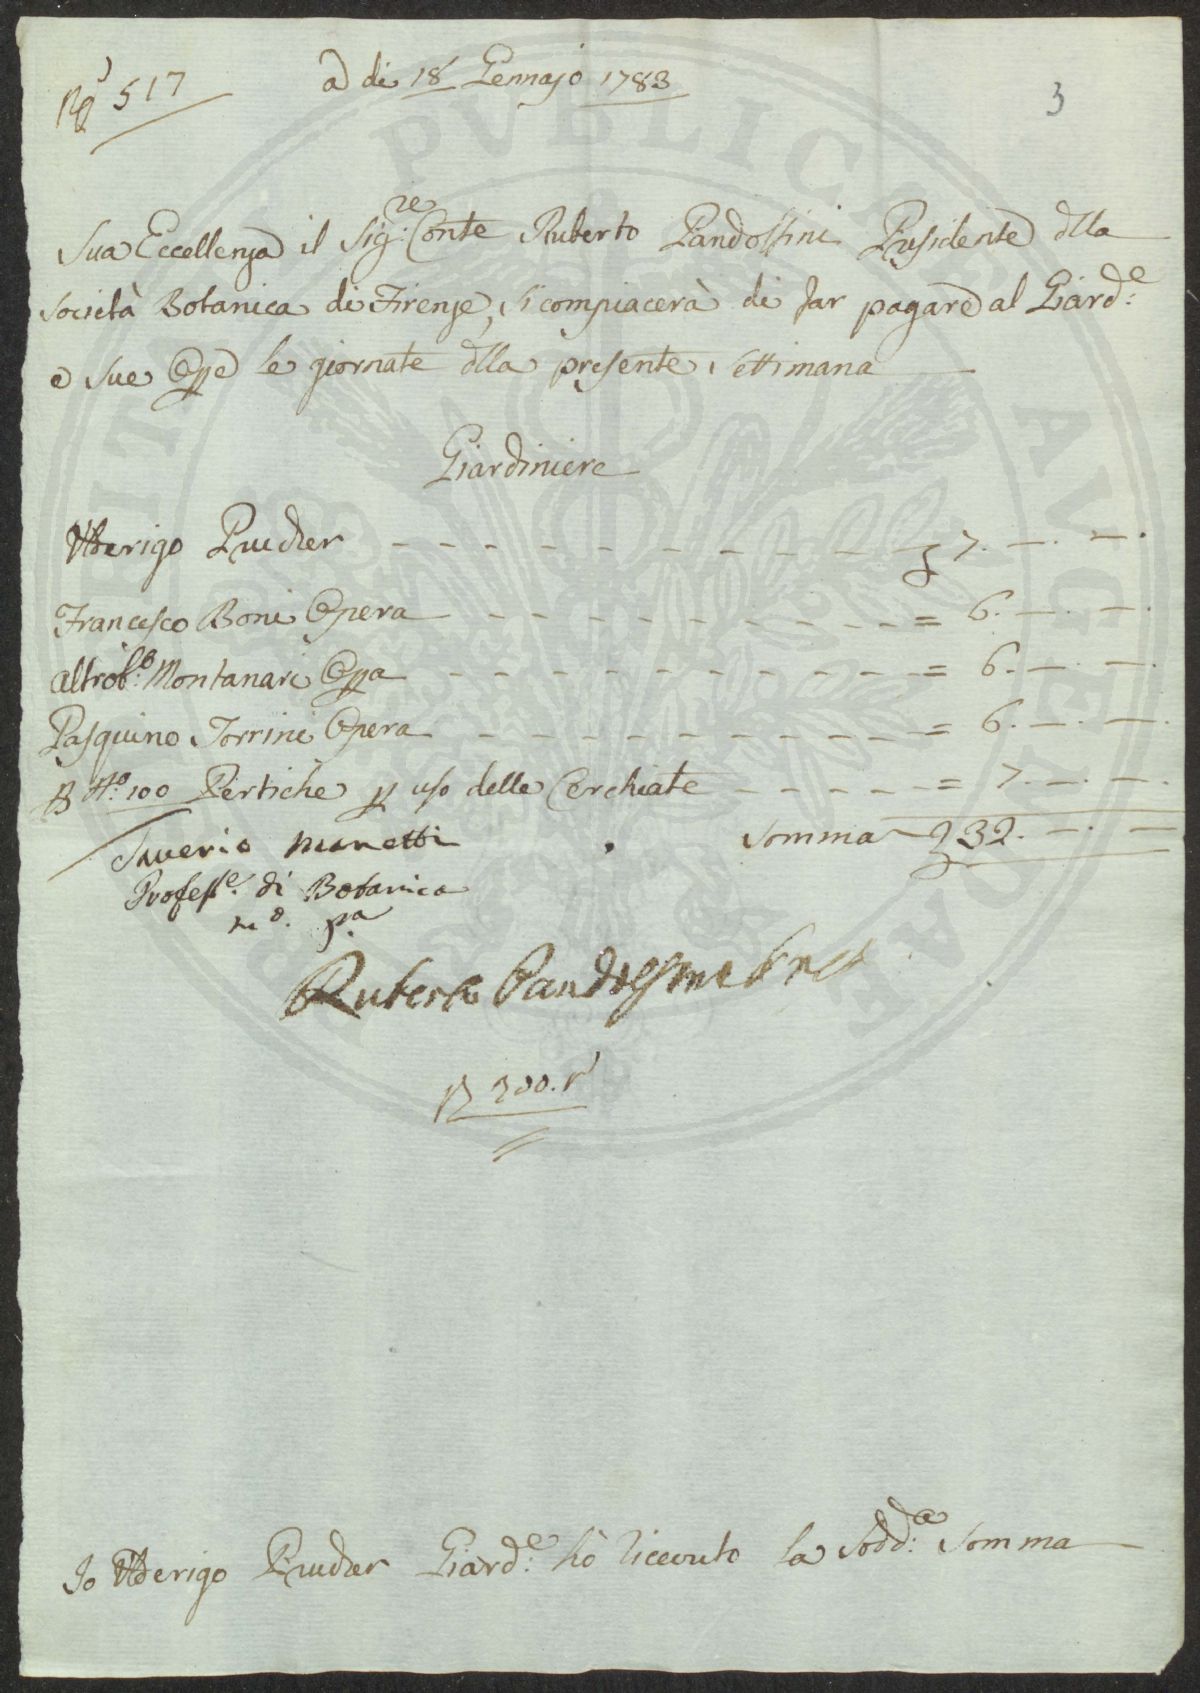 517
a di 18 Gennajo 1783
3
Sua Eccellenza il Sig:re Conte Ruberto Pandolfini Presidente dlla
Società Botanica di Firenze, si compiacerà di far pagare al Giard:e
e sue Oppe le giornate dlla presente settimana
Giardiniere
Ulderigo Prucker - - - - - - - - - - £ 7. —. —.
Francesco Boni Opera - - - - - - - - - = 6. —. —.
Altrob:o Montanari Oppa - - - - - - - - - = 6. —. —.
Pasquino Torrini Opera - - - - - - - - - = 6. —. —.
P N:o 100 Pertiche p uso delle Cerchiate - - - - - = 7. —. —.
Somma £ 32. —. —
Saverio Manetti
Profess:e di Botanica
m:o p:a
Ruberto Pandolfini Pres
Io Ulderigo Prucker Giard:e hò ricevuto la Sodd:a Somma
PUBLICAE